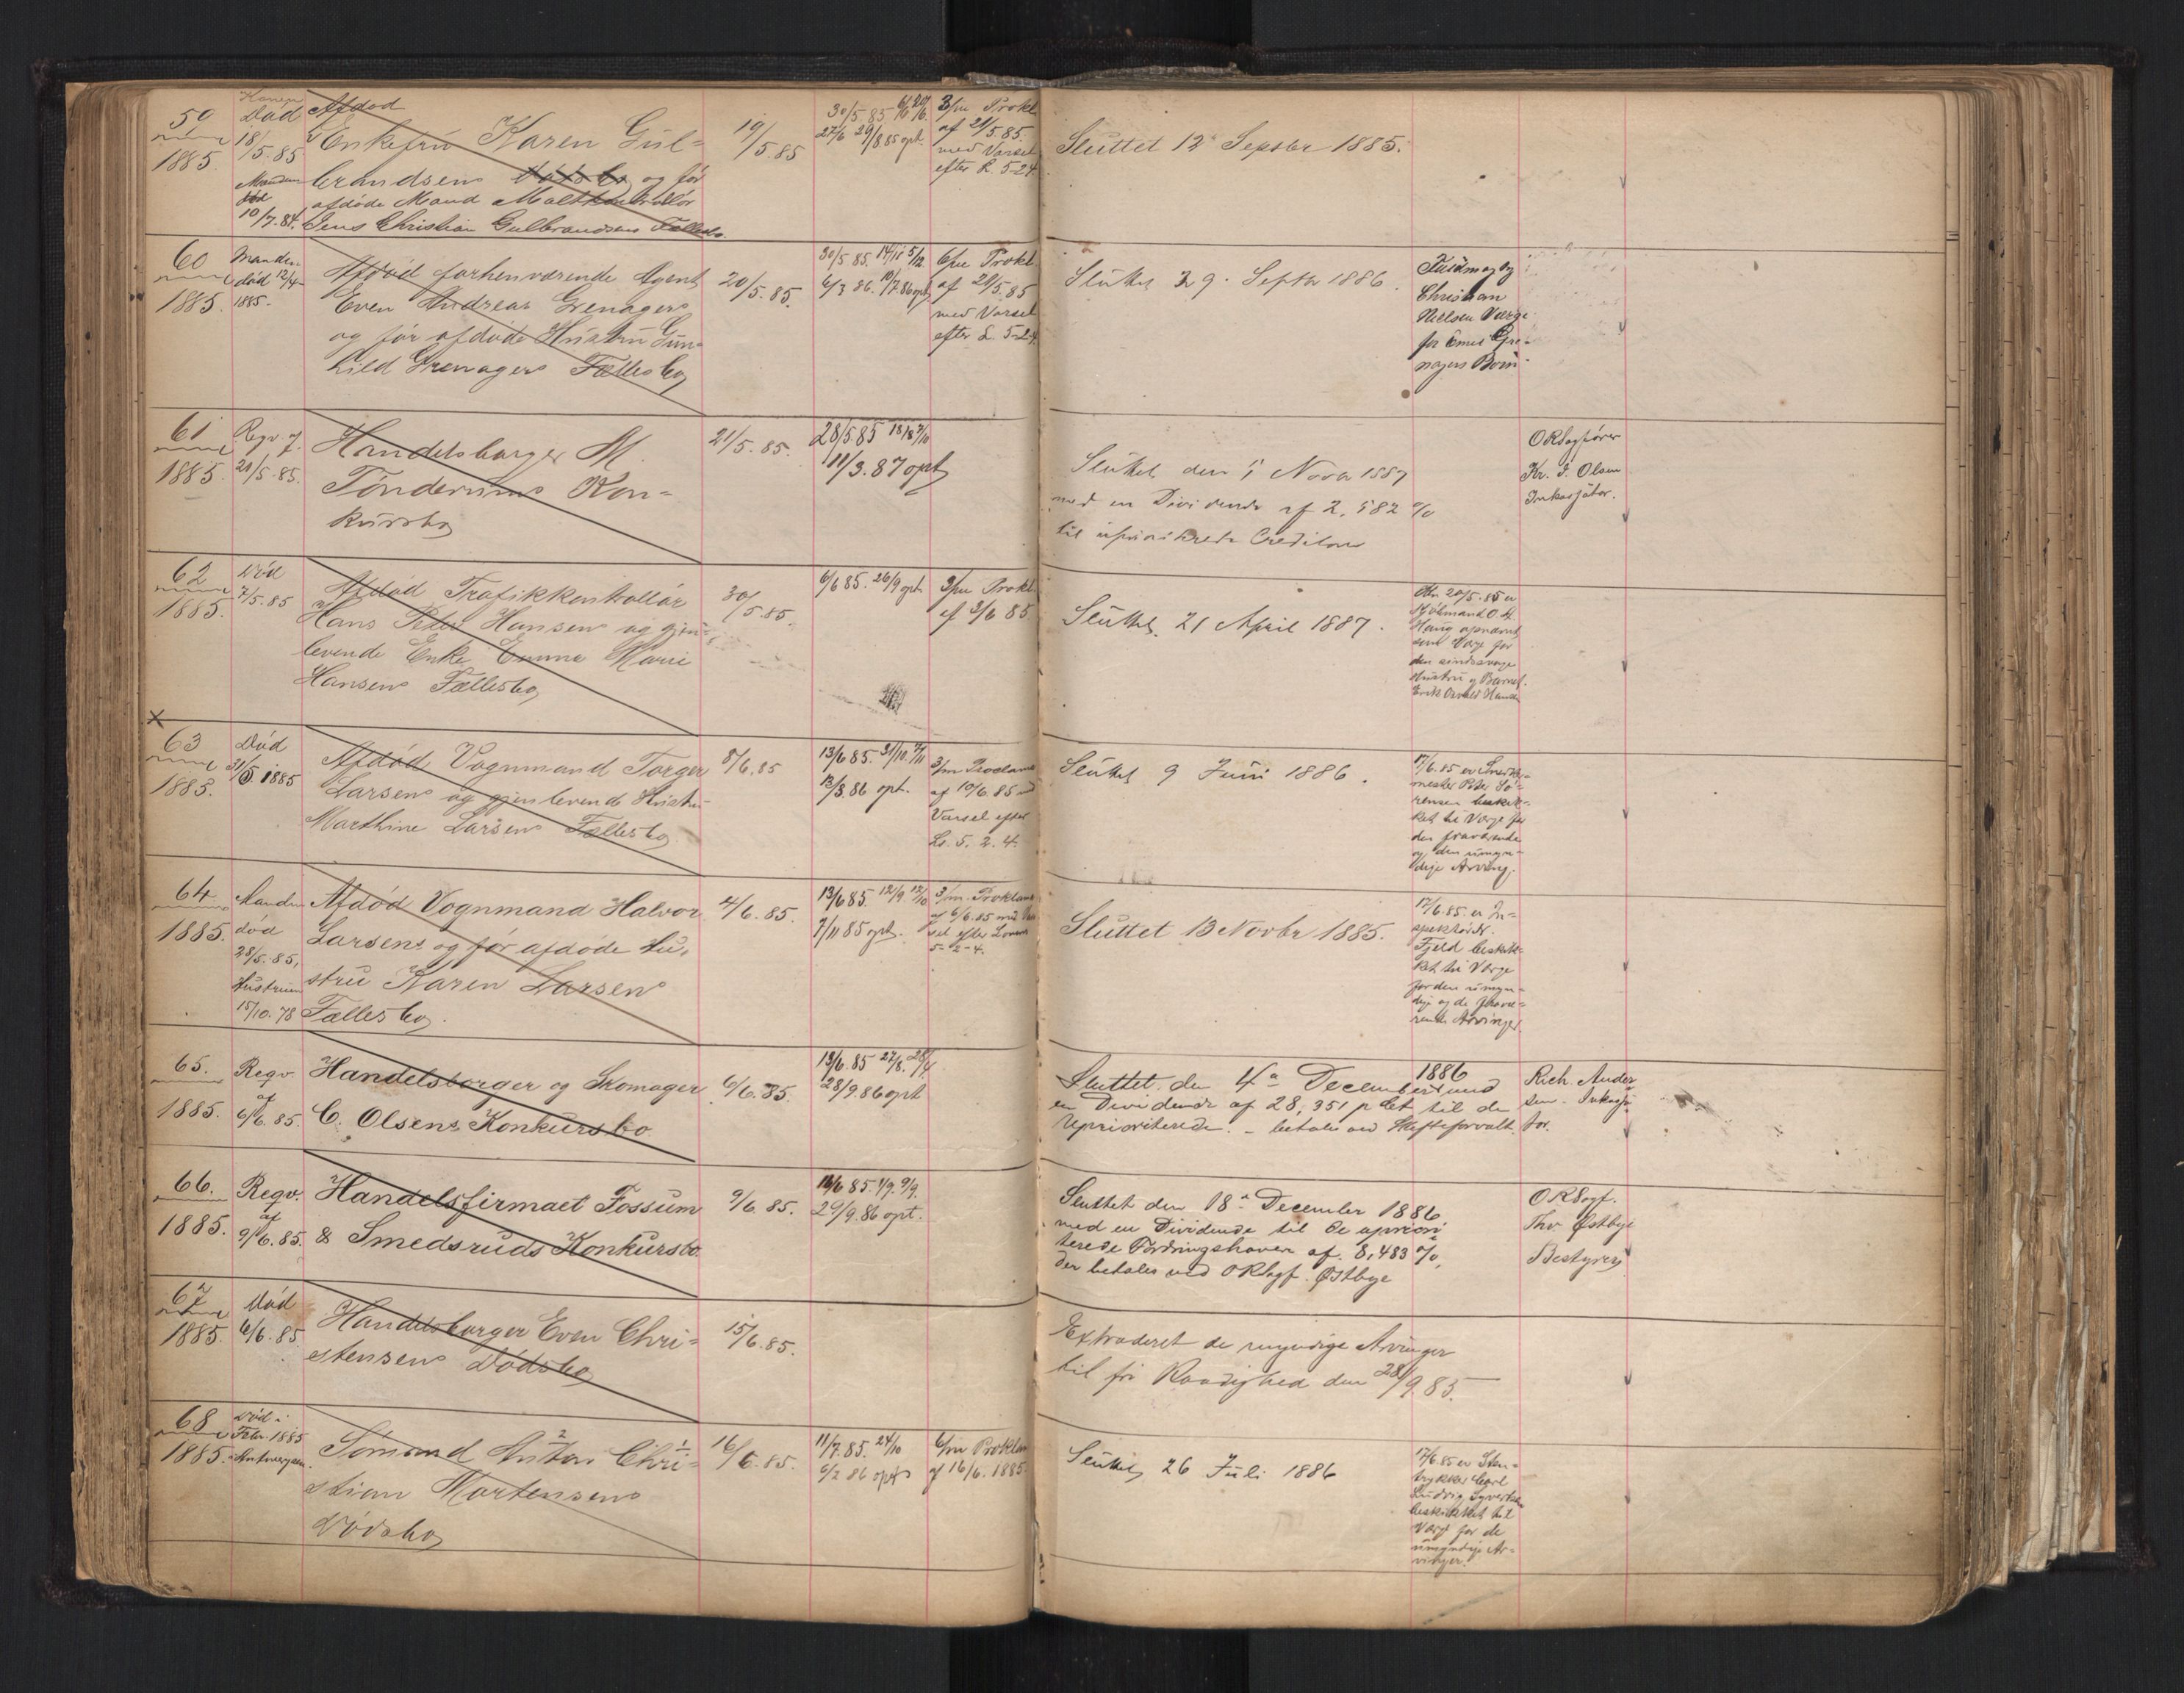 59
1885.
Konen
Død
18/5.85.
Manden
død
10/7.84.
Afdød
Enkefru Karen Gul-
brandsens Dødsbo og før
afdøde Mand Maltkontrollør
Jens Christian Gulbrandsens Fællesbo.
19/5.85
30/5 85. 6/6 20/6.
27/6 29/8 85 opt.
3/m Prokl.
af 21/5.85.
med Varsel
efter L. 5-2-4
Sluttet 12 Septbr 1885.
60
1885.
Manden
død 12/4
1885.
Afdød forhenværende Agent
Even Andreas Grenagers
og før afdøde Hustru Gun-
hild Grenagers Fællesbo
20/5.85.
30/5 85. 14/11 5/12
6/3 86. 10/7 86 opt
6/m Prokl.
af 21/5.85
med Varsel
efter L. 5-2-4
Sluttet 29. Septbr 1886.
Christian
Nielsen Værge
for
61
1885.
Reqv. af
21/5.85.
Handelsborger M.
Tønderums Kon-
kursbo
21/5.85.
28/5 85 18/8 7/11
11/3.87 opt
Sluttet den 5 Novbr 1887
med en Dividende af 2,582 %
til upriviterede Creditorer
ORSagfører
Kr. F. Olsen
Inkassator.
62
1885.
Død
7/5.85
Afdød Trafikkontrollør
Hans Peter Hansens og gjen-
levende Enke Emma Marie
Hansens Fællesbo
30/5.85.
6/6 85. 26/9 opt
3/m Prokl.
af 3/6 85
Sluttet. 21 April 1887.
20/5.85 er
Haug opnævnt
som Værge for
den sindssvage
Hustru og Barnet
Erik Osvald Hansen
63
1885.
Død
31/5 1885
Afdød Vognmand Torger
Larsens og gjenlevende Hustru
Marthine Larsens Fællesbo
8/6.85
13/6 85. 31/10. 7/11
12/3.86 opt.
3/m Proclama
af 10/6.85 med
Varsel efter
L. 5. 2. 4.
Sluttet 9 Juni 1886.
17/6.85 er Snedker-
mester Peter Sø-
rensen beskik-
ket til Værge for
den fraværende
og den umyn-
dige Arving.
64
1885.
Manden
død
28/5.85,
Hustruen
15/10.78
Afdød Vognmand Halvor
Larsens og før afdøde Hu-
stru Karen Larsens
Fællesbo.
4/6.85.
13/6 85. 12/9 17/10
7/11 85 opt.
3/m. Proklama
af 6/6.85 med Var-
sel efter Lovens
5-2-4.
Sluttet 13 Novbr 1885.
17/6.85. er In-
spektør
Fjeld beskik-
ket til Værge
for den umyn-
dige og de fravæ-
rende Arvinger.
65.
1885.
Reqv.
af
6/6.85.
Handelsborger og Skomager
C. Olsens Konkursbo.
6/6.85.
13/6.85 27/8. 28/4
28/9.86 opt
Sluttet den 4de December 1886 med
en Dividende af 28,351 pCt til de
Uprioriterede. - betales ved Skifteforvalt.
Rich. Ander
sen. Inkassa
tor.
66.
1885.
Reqv.
af
9/6.85.
Handelsfirmaet Fossum
& Smedsruds Konkursbo
9/6.85.
16/6 85. 1/9. 9/9.
29/9.86 opt.
Sluttet den 18de December 1886
med en Dividende til de upriori-
terede Fordringshaver af. 8,483 %,
der betales ved ORSagf. Østbye
ORSagf.
Thv Østbye
Bestyrer
67
1885.
Død
6/6.85
Handelsborger Even Chri-
stensens Dødsbo
15/6.85.
Extraderet de myndige Arvinger
til fri Raadighed den 28/9 85.
68
1885.
Død i
Febr. 1885
Antwerpen.
Sømand Anton Chri-
stian Mortensens
Dødsbo
16/6.85.
11/7.85. 24/10
6/2 86 opt
6/m Proklam
af 16/6.1885
Sluttet 26 Juli 1886
17/6.85 er Sten-
trykker Carl
Ludvig Syvertsen
beskikket til
Værge for de
umyndige Ar-
vinger.